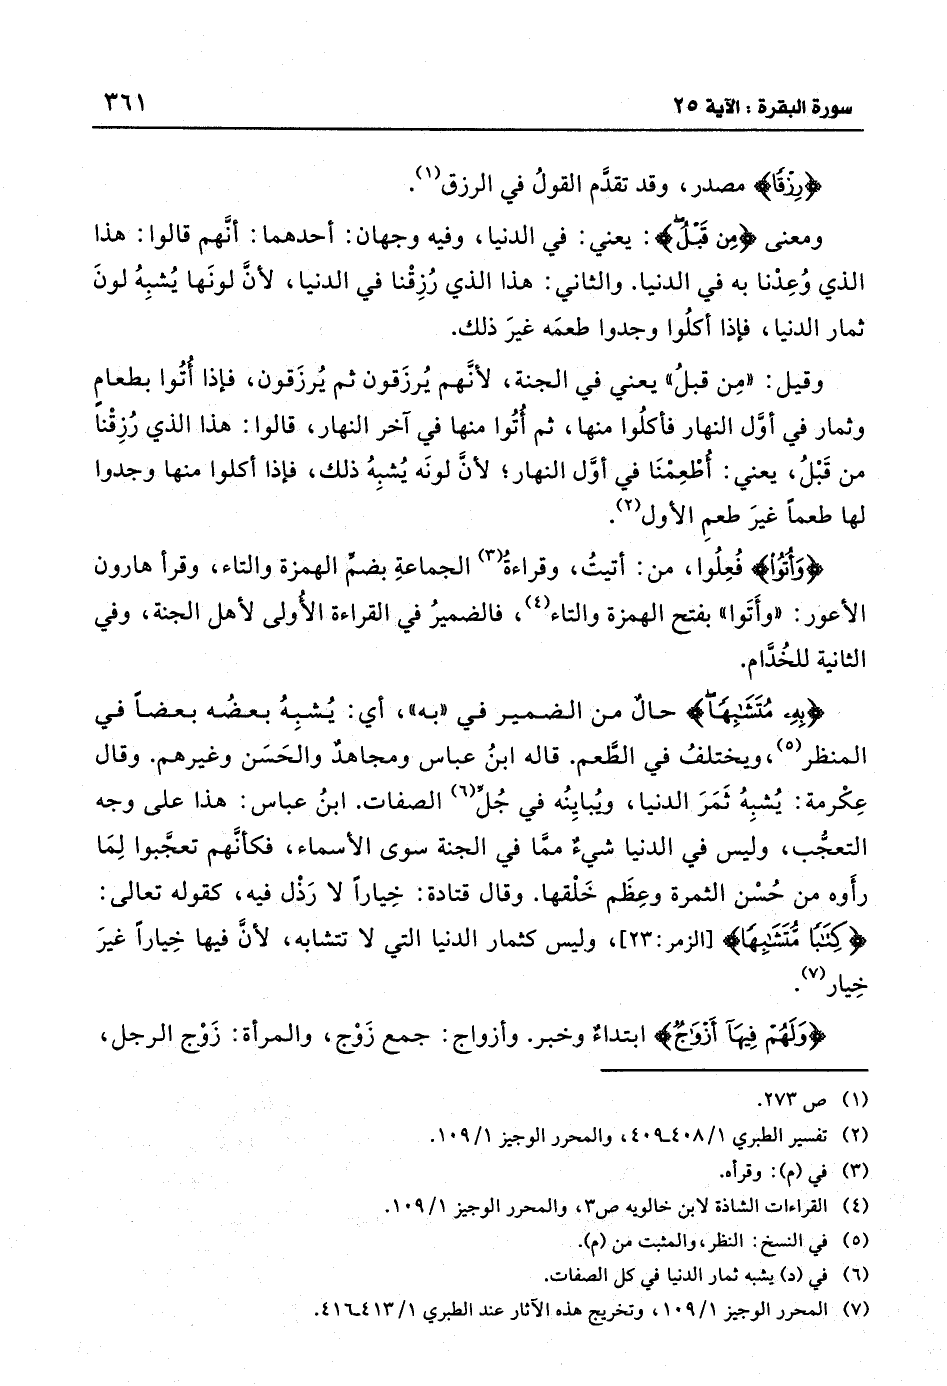 سورة البقرة : الآية ٢٥
٣٦١
﴿رِزْقًا﴾ مصدر، وقد تقدَّم القولُ في الرزق(١).
ومعنى ﴿مِن قَبْلُ﴾: يعني: في الدنيا، وفيه وجهان: أحدهما: أنَّهم قالوا: هذا
الذي وُعِدْنا به في الدنيا. والثاني: هذا الذي رُزِقْنا في الدنيا، لأنَّ لونَها يُشبِهُ لونَ
ثمار الدنيا، فإذا أكلُوا وجدوا طعمَه غيرَ ذلك.
وقيل: «مِن قبلُ» يعني في الجنة، لأنَّهم يُرزَقون ثم يُرزَقون، فإذا أُتُوا بطعامٍ
وثمار في أوَّل النهار فأكلُوا منها، ثم أُتُوا منها في آخر النهار، قالوا: هذا الذي رُزِقْناَ
من قَبْلُ، يعني: أُطْعِمْنَا في أوَّل النهار؛ لأنَّ لونَه يُشبِهُ ذلك، فإذا أكلوا منها وجدوا
لها طعماً غيرَ طعمِ الأول(٢).
﴿وَأُتُوا۟﴾ فُعِلُوا، من: أتيتُ، وقراءةُ(٣) الجماعةِ بضمِّ الهمزة والتاء، وقرأ هارون
الأعور: «وأَتَوا» بفتح الهمزة والتاء(٤)، فالضميرُ في القراءة الأُولى لأهل الجنة، وفي
الثانية للخُدَّام.
﴿بِهِۦ مُتَشَٰبِهًا﴾ حالٌ من الضمير في «به»، أي: يُشبِهُ بعضُه بعضاً في
المنظر(٥)، ويختلفُ في الطَّعم. قاله ابنُ عباس ومجاهدٌ والحَسَن وغيرهم. وقال
عِكْرمة: يُشبِهُ ثَمَرَ الدنيا، ويُبايِنُه في جُلِّ(٦) الصفات. ابنُ عباس: هذا على وجه
التعجُّب، وليس في الدنيا شيءٌ ممَّا في الجنة سوى الأسماء، فكأنَّهم تعجَّبوا لِمَا
رأَوه من حُسْن الثمرة وعِظَم خَلْقها. وقال قتادة: خِياراً لا رَذْل فيه، كقوله تعالى:
﴿كِتَٰبًا مُّتَشَٰبِهًا﴾ [الزمر:٢٣]، وليس كثمار الدنيا التي لا تتشابه، لأنَّ فيها خِياراً غيرَ
خِيار(٧).
﴿وَلَهُمْ فِيهَآ أَزْوَٰجٌ﴾ ابتداءٌ وخبر. وأزواج: جمع زَوْج، والمرأة: زَوْج الرجل،
(١) ص ٢٧٣.
(٢) تفسير الطبري ١/ ٤٠٨-٤٠٩، والمحرر الوجيز ١/ ١٠٩.
(٣) في (م): وقرأه.
(٤) القراءات الشاذة لابن خالويه ص٣، والمحرر الوجيز ١/ ١٠٩.
(٥) في النسخ: النظر، والمثبت من (م).
(٦) في (د) يشبه ثمار الدنيا في كل الصفات.
(٧) المحرر الوجيز ١/ ١٠٩، وتخريج هذه الآثار عند الطبري ١/ ٤١٣-٤١٦.